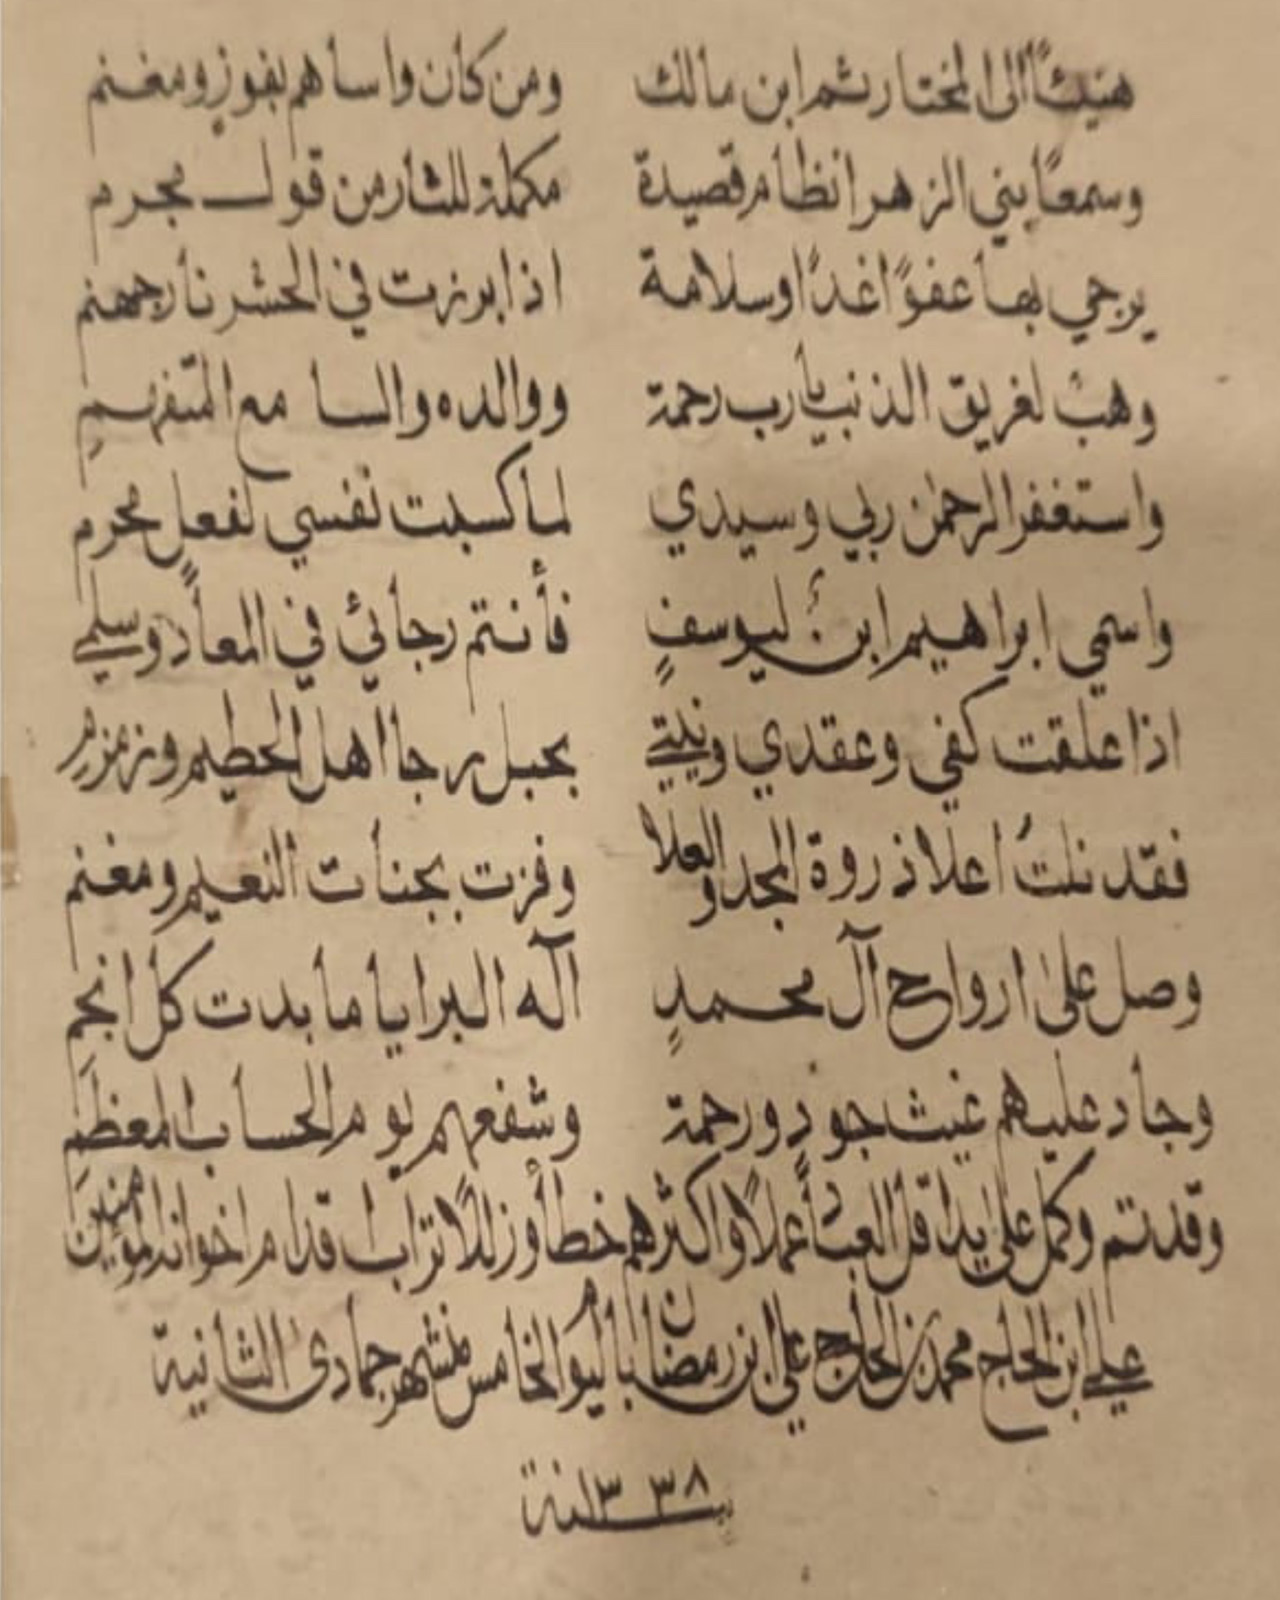 هنيئاً الى المختار ثم ابن مالك ومن كان واساهم بفوزٍ ومغنم
وسمعاً بني الزهرا نظام قصيدة مكملة للثار من قول مجرم
يرجي بها عفوًا غدًا وسلامة اذا برزت في الحشر نار جهنم
وهب لغريق الذنب يا رب رحمة ووالده والسامع المتفهم
واستغفر الرحمٰن ربي وسيدي لما كسبت نفسي لفعلٍ محرم
واسمي ابراهيم ابنٌ ليوسفٍ فأنتم رجائي في المعاد وسلمي
اذا علقت كفي وعقدي ونيتي بحبل رجا اهل الحطيم وزمزم
فقد نلتُ اعلا ذروة المجد والعلا وفزت بجنات النعيم ومغنم
وصل على ارواح آل محمدٍ آله البرايا ما بدت كل انجم
وجاد عليهم غيث جودٍ ورحمة وشفعهم يوم الحساب المعظم
وقد تم وكمل على يد اقل العباد عملاً واكثرهم خطأ وزللاً تراب اقدام اخوانه المؤمنين
علي ابن الحاج محمد بن الحاج علي ابن رمضان باليوم الخامس من شهر جمادى الثانية
سنة ١٣٣٨